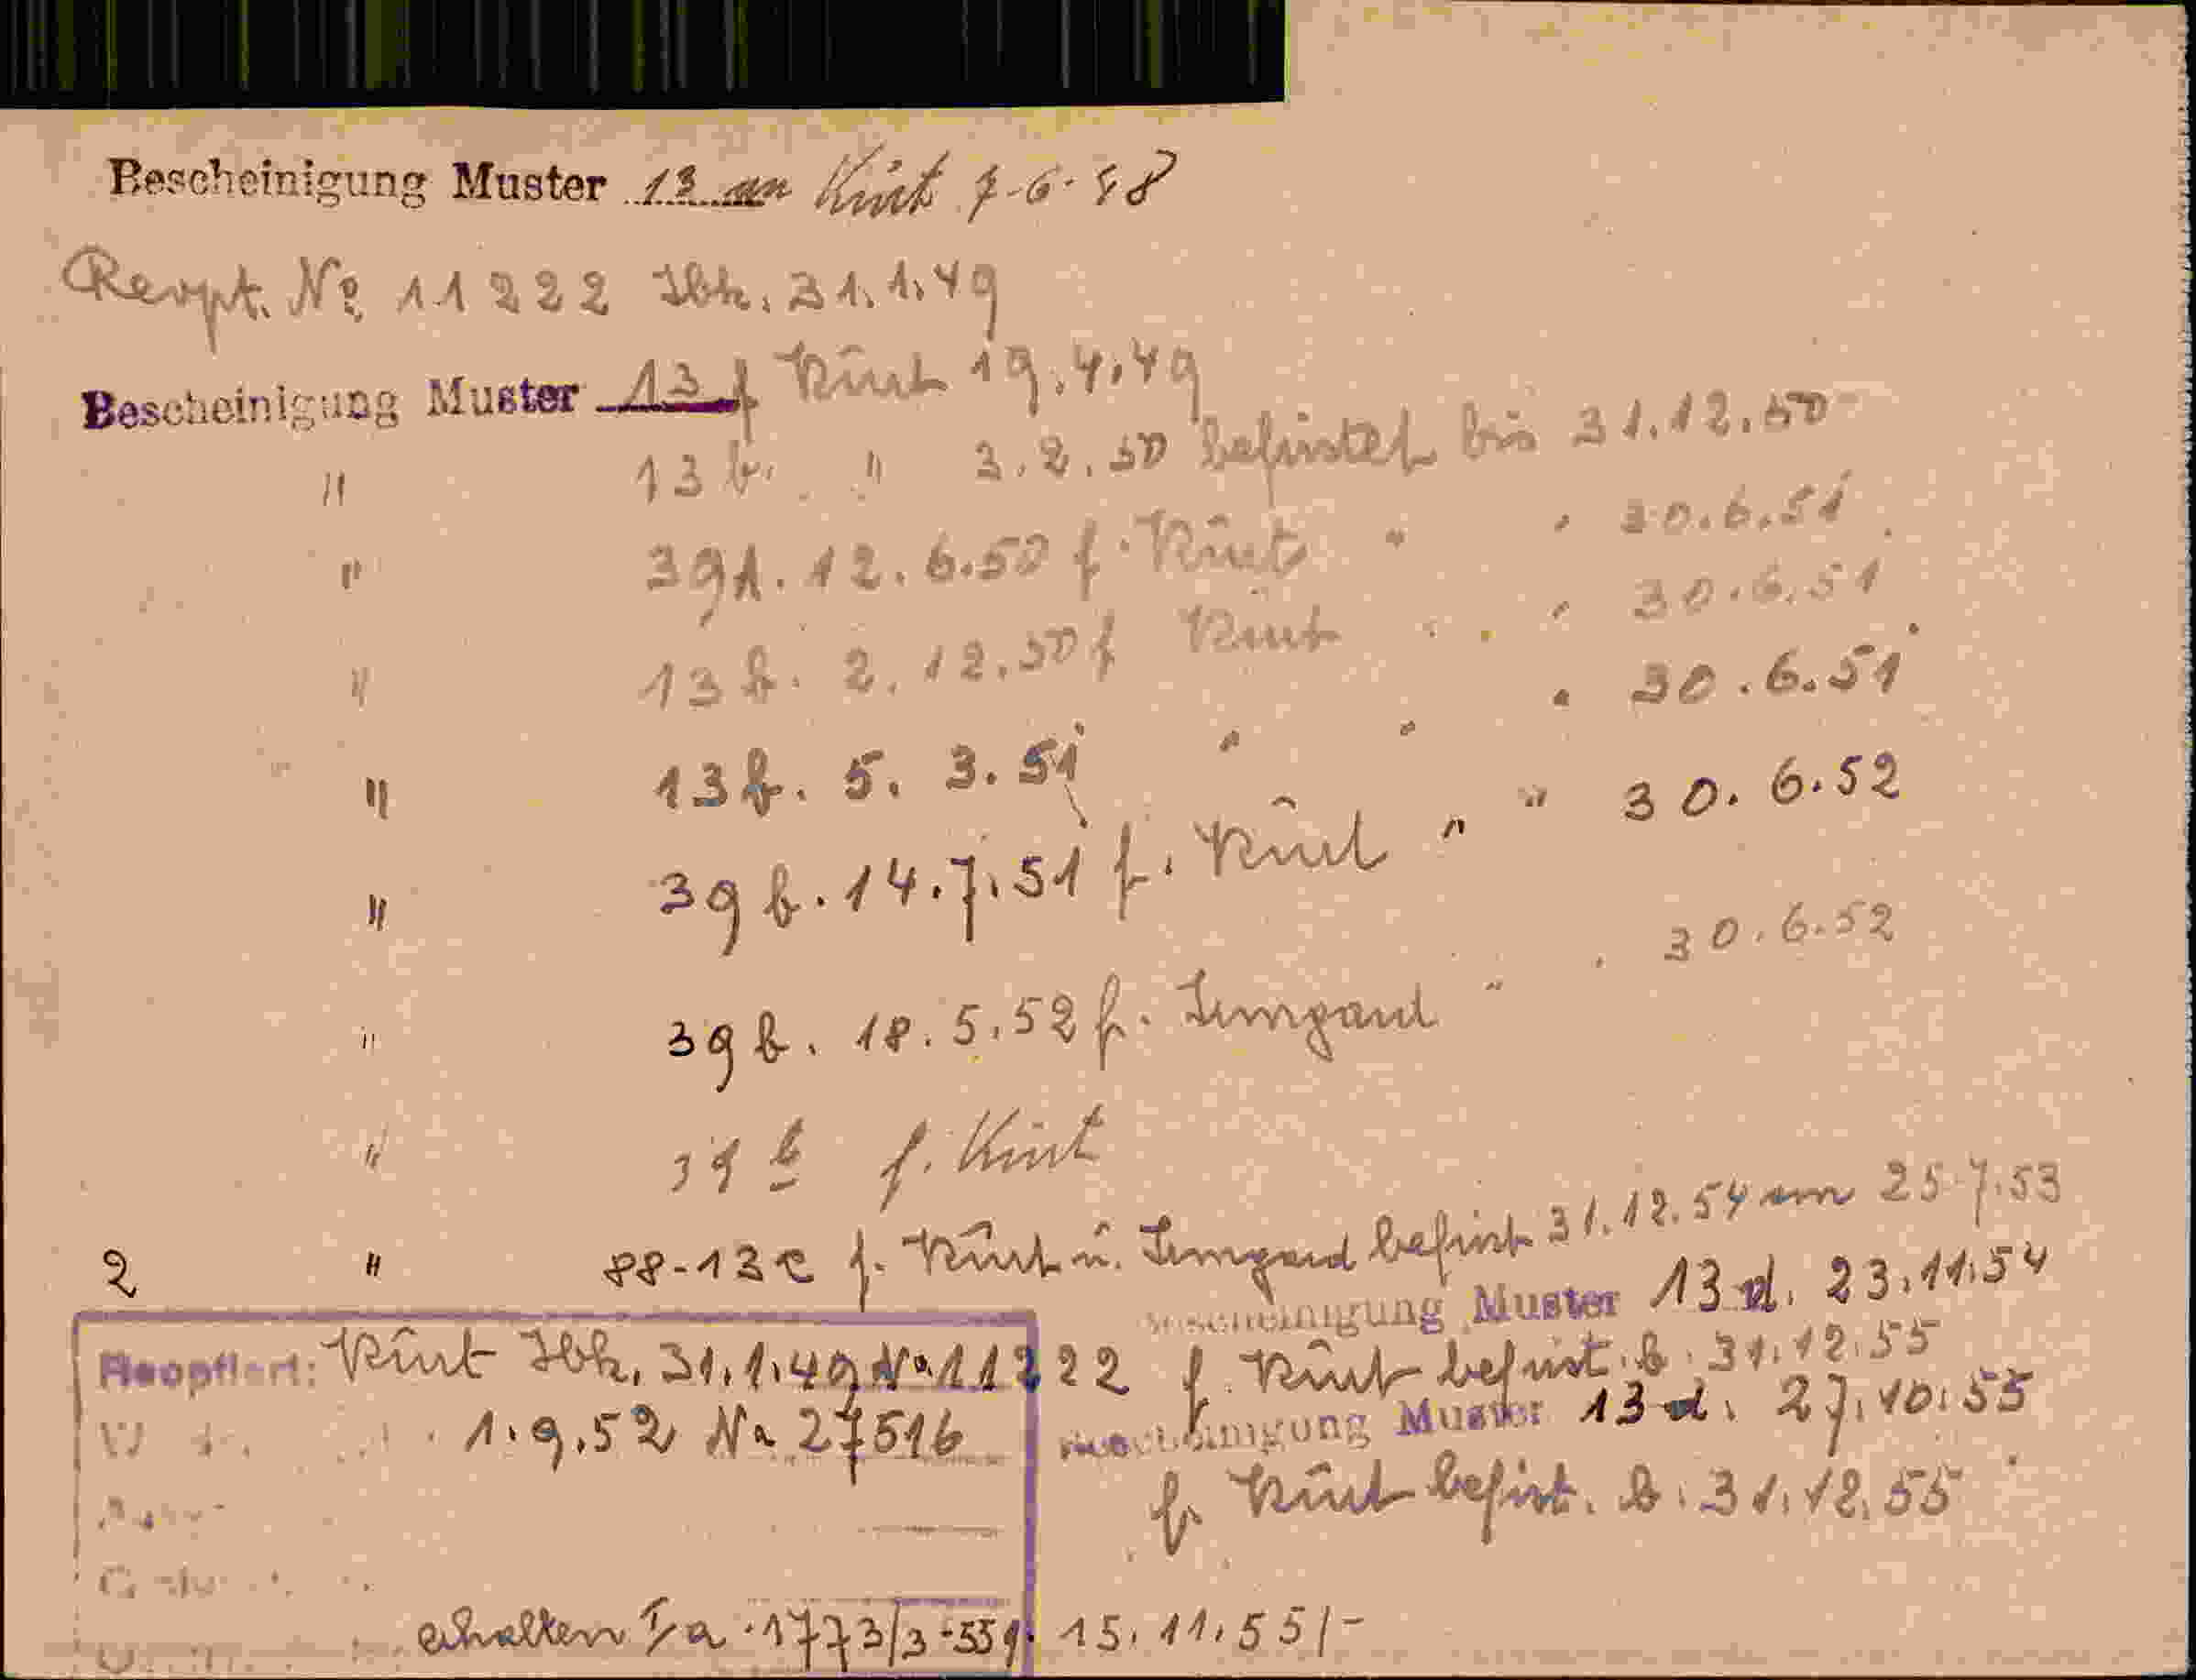 Bescheinigung Muster 13 an Kurt 7.6.48
Reopt. No 11222 Ibk. 31.1.49
Bescheinigung Muster 13 f Kurt 19.4.49
" 13 b. " 3.2.50 befristet bis 31.12.50
" 391. 12.6.50 f. Kurt " " 30.6.51
" 13 b. 2.12.50 f Kurt " " 30.6.51
" 13 b. 5.3.51 " " " 30.6.51
" 39 b. 14.7.51 f. Kurt " " 30.6.52
" 39 b. 18.5.52 f. Irmgard " " 30.6.52
" 39 b f. Kurt
2 " 88-13c f. Kurt u. Irmgard befrist 31.12.54 am 25.7.53
Bescheinigung Muster 13 d. 23.11.54
Reoptiert: Kurt Ibk. 31.1.49 No 11222
f. Kurt befrist. b. 31.12.55
1.9.52 No 27516
Bescheinigung Muster 13 d. 27.10.55
f. Kurt befrist. b. 31.12.55
erhalten I/a 1773/3-55 15.11.55/-